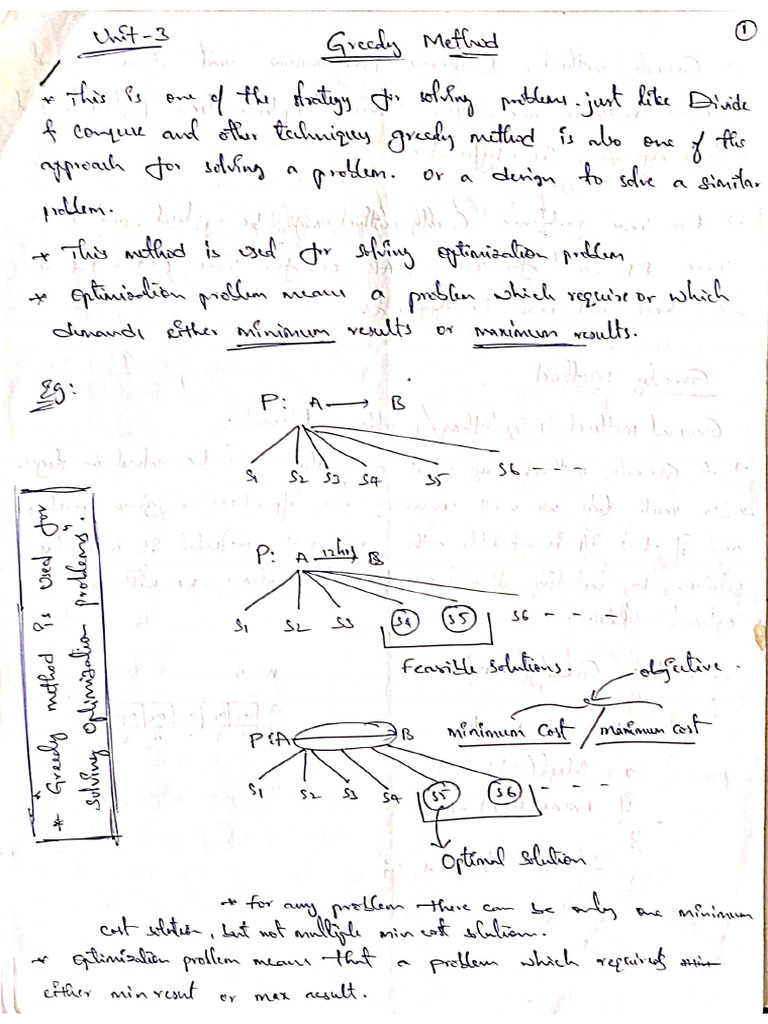 1
Unit-3
Greedy Method
* This is one of the strategy for solving problems. just like Divide
& conquer and other techniques greedy method is also one of the
approach for solving a problem. or a design to solve a similar
problem.
* This method is used for solving optimization problem
* optimization problem means a problem which require or which
demands either minimum results or maximum results.
Eg:
P: A → B
S1 S2 S3 S4 S5 S6 - - -
P: A 12hrs B
S1 S2 S3 S4 S5 S6 - - -
Feasible solutions.
objective.
minimum cost / maximum cost
P: A B
S1 S2 S3 S4 S5 S6 - - -
Optimal solution
* Greedy method is used for
solving optimization problems".
* for any problem there can be only one minimum
cost solution, but not multiple min cost solution.
* optimization problem means that a problem which requires
either min result or max result.